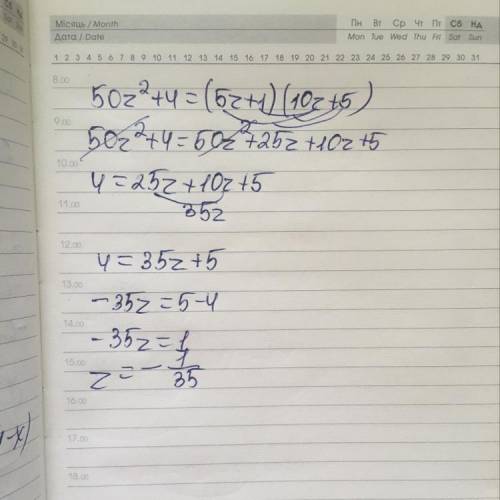 Місяць / Month
Пн Вт Ср Чт Пт Сб Нд
Дата / Date
Mon Tue Wed Thu Fri Sat Sun
1 2 3 4 5 6 7 8 9 10 11 12 13 14 15 16 17 18 19 20 21 22 23 24 25 26 27 28 29 30 31
8.00
50z²+4=(5z+1)(10z+5)
9.00
50z²+4=50z²+25z+10z+5
10.00
4=25z+10z+5
11.00
35z
12.00
4=35z+5
13.00
-35z=5-4
14.00
-35z=1
15.00
z=-1/35
16.00
17.00
18.00